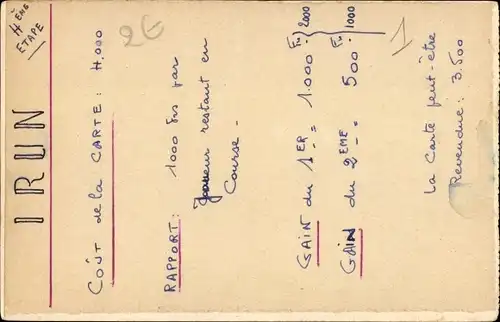 4ÈNG
ETAPE
IRUN
2€
COÛT de la CARTE: 4.000
RAPPORT: 1000 frs par
Joueur restant en
Course -
GAIN du 1ER -"= 1.000 Frs } 2000
GAIN du 2EME -"- 500 Frs } 1000
La Carte peut-être
Revendue: 3.500